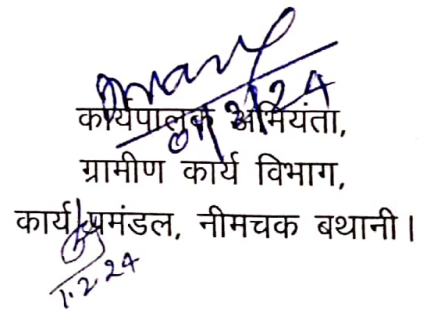 01/2/24
कार्यपालक अभियंता,
ग्रामीण कार्य विभाग,
कार्य प्रमंडल, नीमचक बथानी।
1.2.24